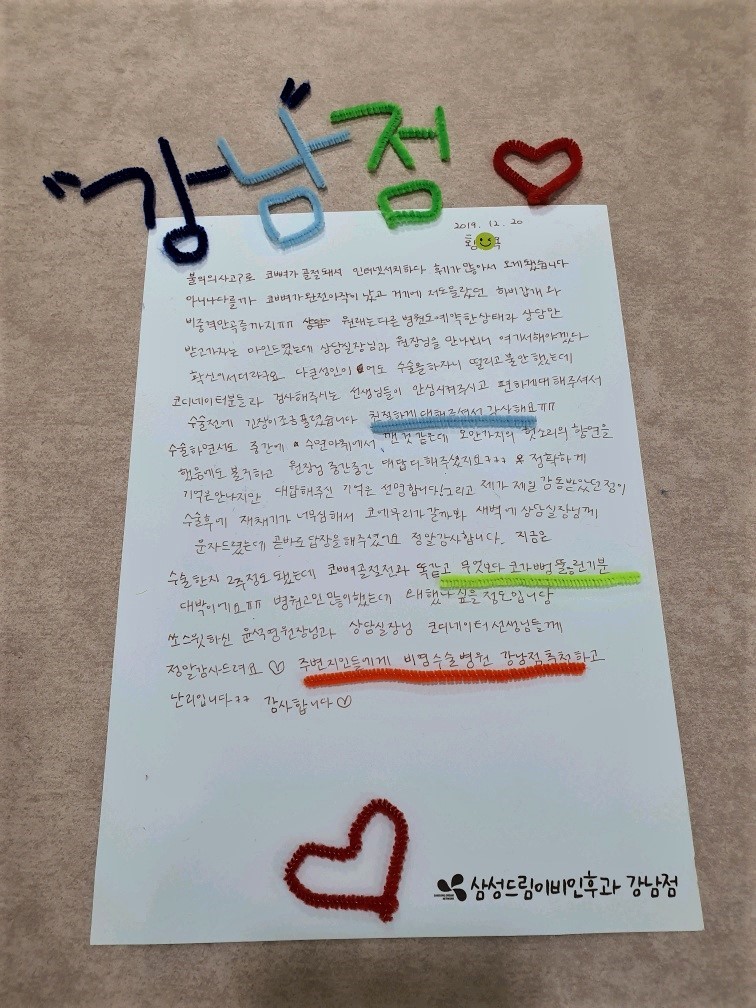 "강남점"
2019. 12. 20
불의의사고?로 코뼈가 골절돼서 인터넷서치하다 후기가 많아서 오게됐습니다
아니나다를까 코뼈가완전아작이 났고 거기에 저도몰랐던 하비갑개 와
비중격만곡증까지ㅠㅠ 원래는다른 병원도예약한상태라 상담만
받고가자는 마인드였는데 상담실장님과 원장님을 만나뵈니 여기서해야겠다
확신이서더라구요 다큰성인이 어도 수술을하자니 떨리고불안했는데
코디네이터분들과 검사해주시는 선생님들이 안심시켜주시고 편하게대해주셔서
수술전에 긴장이조금풀렸습니다 친절하게대해주셔서 감사해요ㅠㅠ
수술하면서도 중간에 수면마취에서 깬것같은데 오만가지의 헛소리의 향연을
했음에도 불구하고 원장님 중간중간 대답다해주셨지요ㅋㅋㅋ 정확하게
기억은안나지만 대답해주신 기억은 선명합니다! 그리고 제가 제일 감동받았던점이
수술후에 재채기가 너무심해서 코에무리가갈까봐 새벽에상담실장님께
문자드렸는데 곧바로답장을해주셨어요 정말감사합니다. 지금은
수술한지 2주정도됐는데 코뼈골절전과 똑같고 무엇보다 코가뻥뚫린기분
대박이에요ㅠㅠ 병원고민많이했는데 왜했나싶을정도입니다
쏘스윗하신 윤석영원장님과 상담실장님 코디네이터선생님들께
정말감사드려요♡ 주변지인들에게 비염수술병원 강남점추천하고
난리입니다ㅋㅋ 감사합니다♡
삼성드림이비인후과 강남점